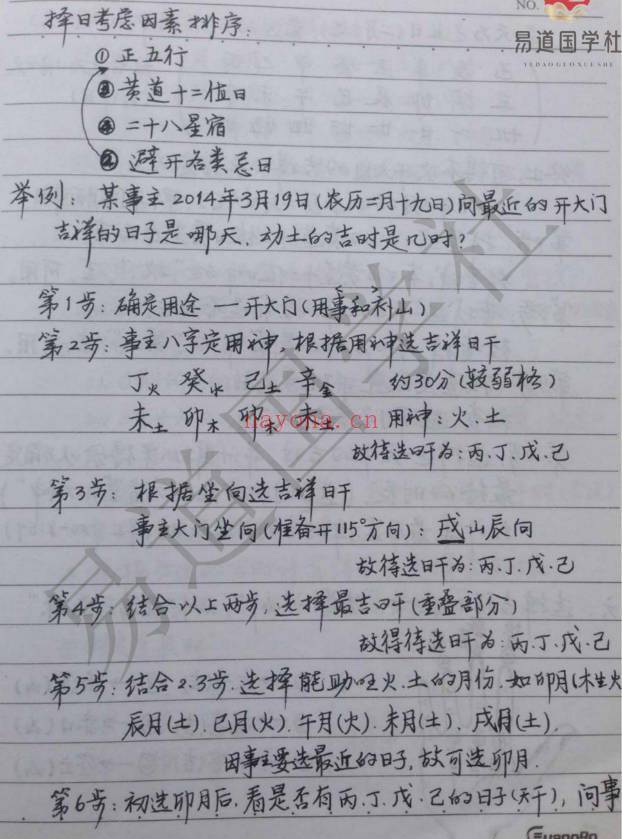 NO.
易道国学社
YI DAO GUO XUE SHE
择日考虑因素排序：
① 正五行
③ 黄道十二值日
④ 二十八星宿
② 避开各类忌日
举例：某事主2014年3月19日(农历二月十九日)问最近的开大门
吉祥的日子是哪天，动土的吉时是几时？
第1步：确定用途一一开大门(用事和利山)
第2步：事主八字定用神，根据用神选吉祥日干
丁火 癸水 己土 辛金 约30分(较弱格)
未土 卯木 卯木 未土 用神：火、土
故待选日干为：丙、丁、戊、己
nayona.cn
第3步：根据坐向选吉祥日干
事主大门坐向(准备开115°方向)：戌山辰向
故待选日干为：丙、丁、戊、己
第4步：结合以上两步，选择最吉日干(重叠部分)
故得待选日干为：丙、丁、戊、己
第5步：结合2.3步，选择能助旺火、土的月份，如卯月(木生火
辰月(土)、巳月(火)、午月(火)、未月(土)、戌月(土)
因事主要选最近的日子，故可选卯月．
第6步：初选卯月后，看是否有丙、丁、戊、己的日子(天干)，问事
易道国学社